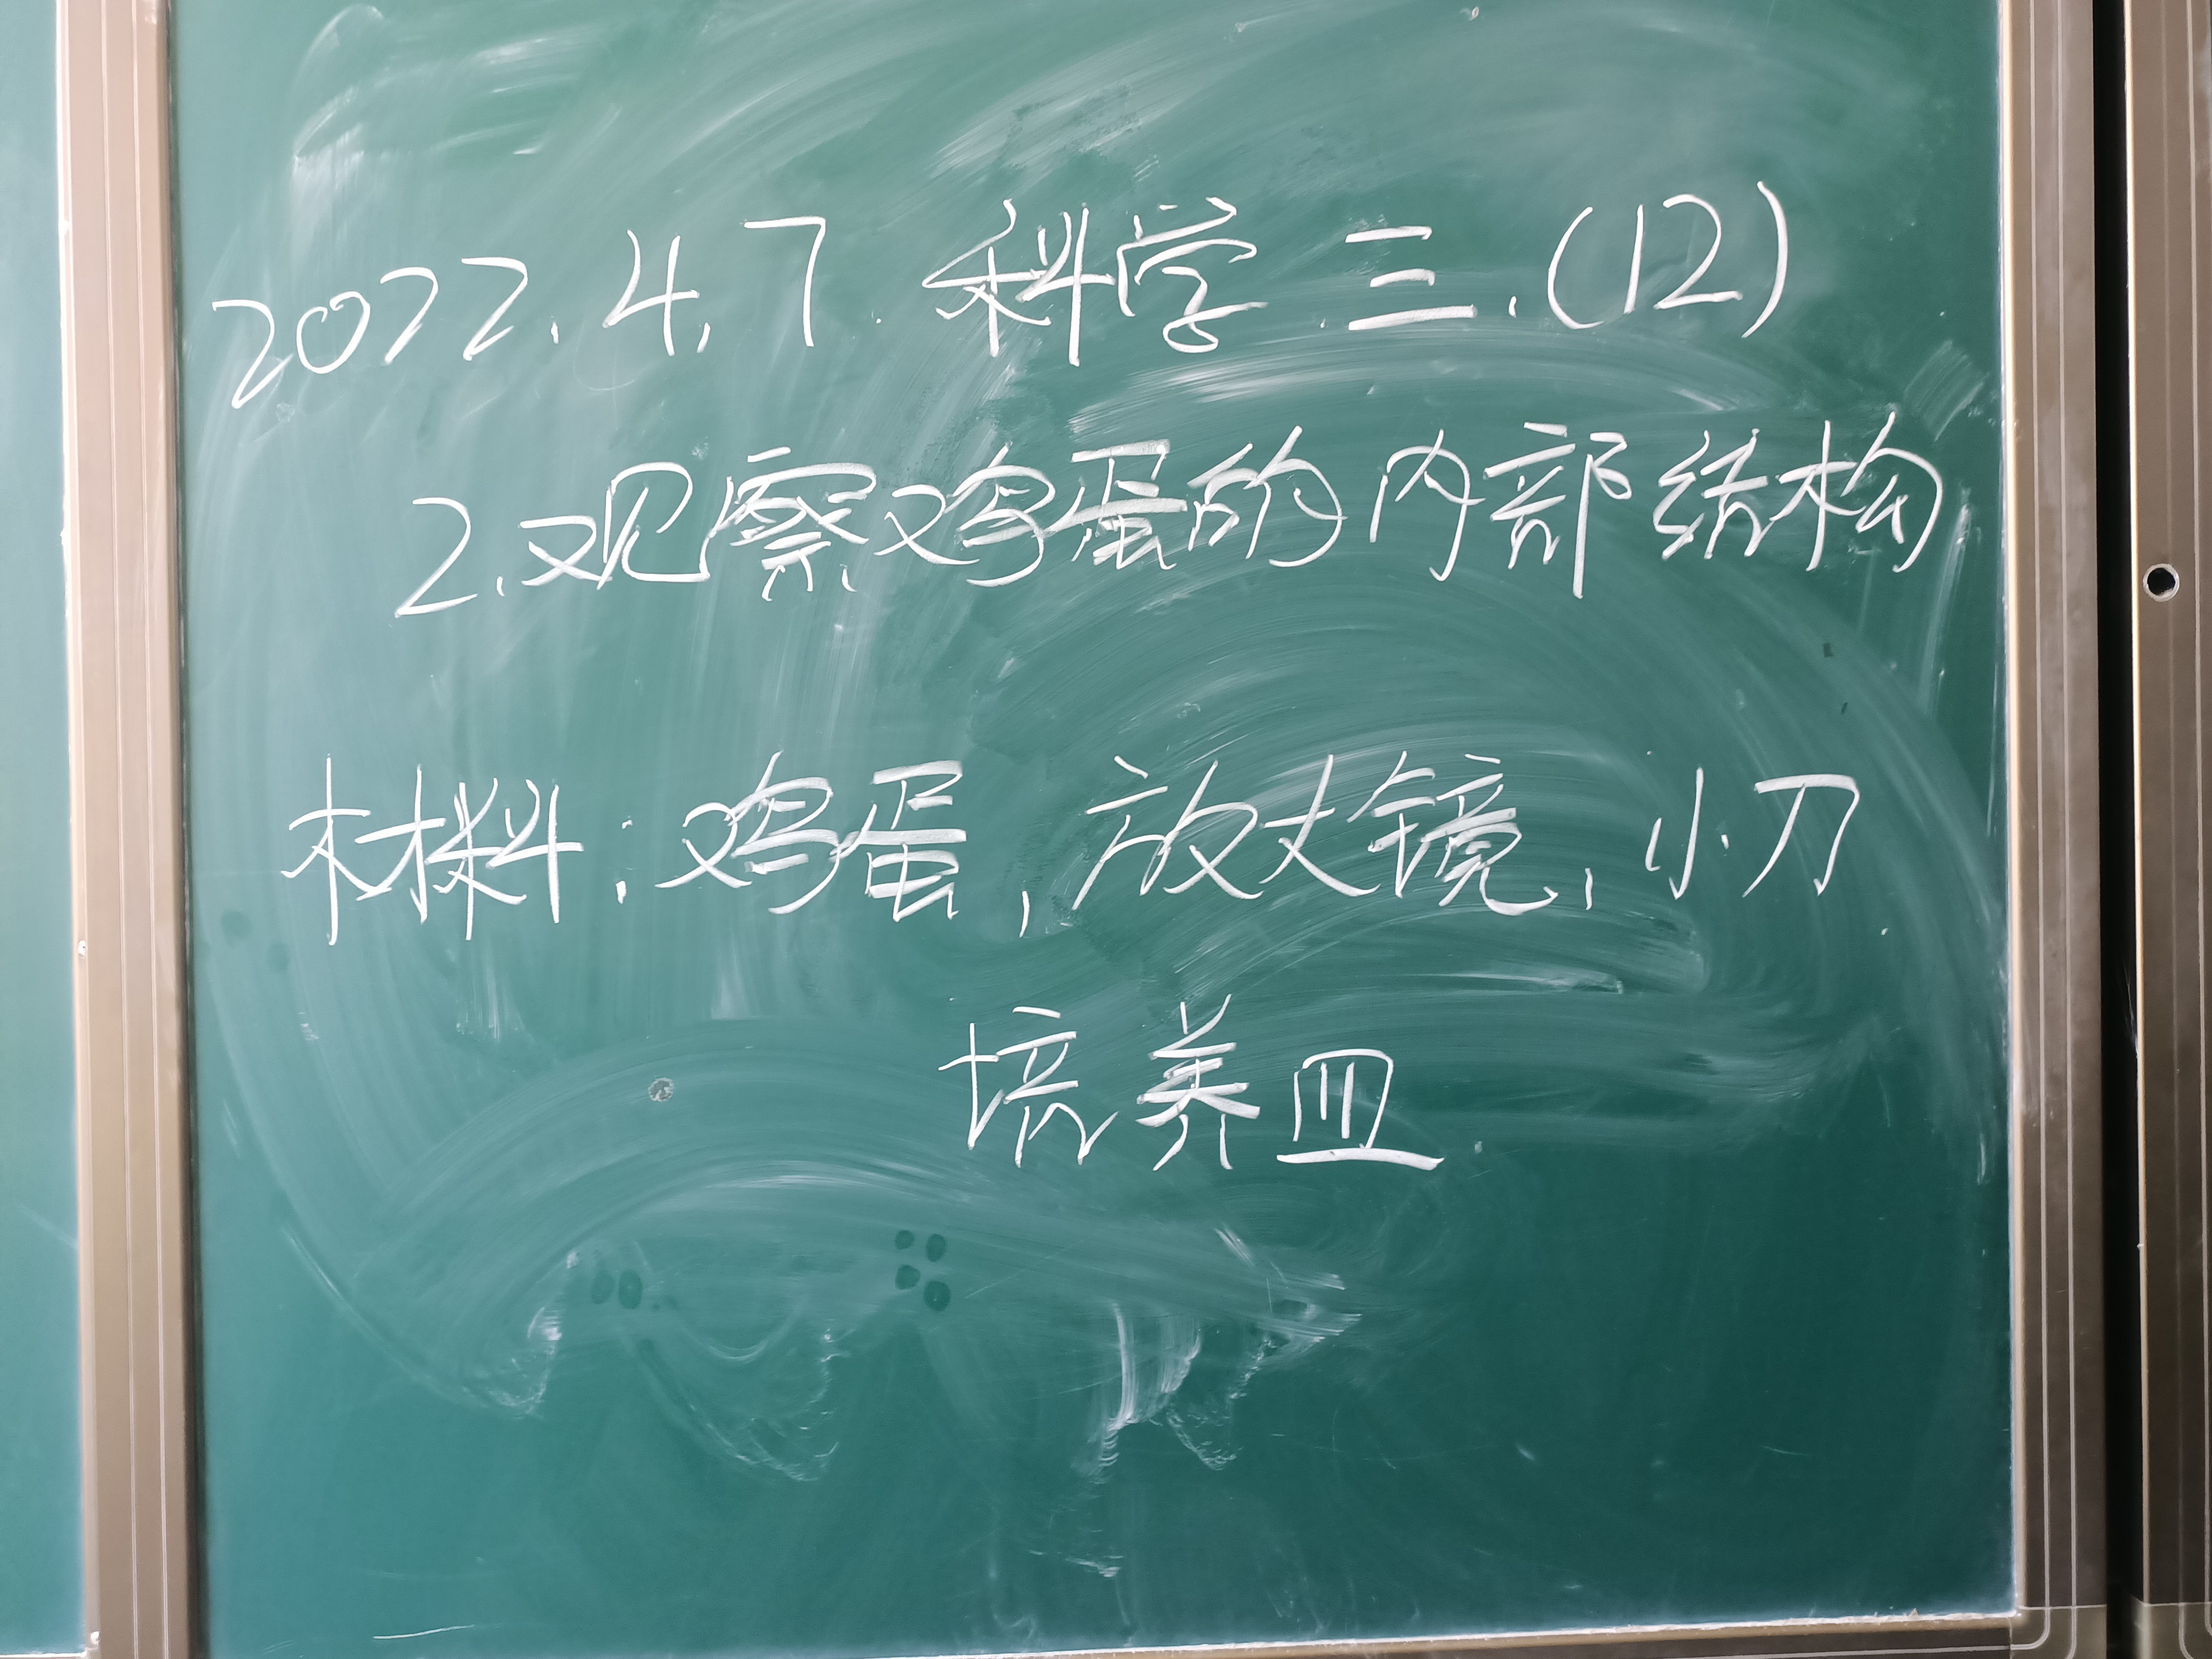 2022.4.7. 科学 三.(12)
2.观察鸡蛋的内部结构
材料:鸡蛋,放大镜,小刀
培养皿